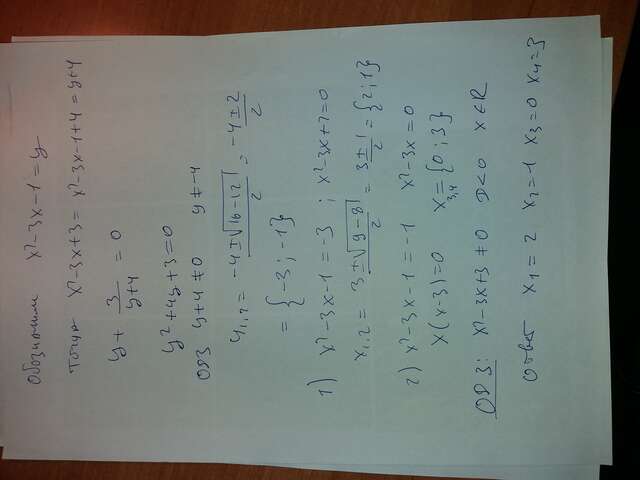 Обозначим x²-3x-1=y
Тогда x²-3x+3 = x²-3x-1+4 = y+4
y + 3/(y+4) = 0
y²+4y+3=0
ОДЗ y+4≠0 y≠-4
y₁,₂ = (-4±√(16-12))/2 = (-4±2)/2
= {-3; -1}
1) x²-3x-1=-3; x²-3x+2=0
x₁,₂ = (3±√(9-8))/2 = (3±1)/2 = {2;1}
2) x²-3x-1=-1 x²-3x=0
x(x-3)=0 x₃,₄={0;3}
ОДЗ: x²-3x+3≠0 D<0 x∈R
ответ x₁=2 x₂=1 x₃=0 x₄=3